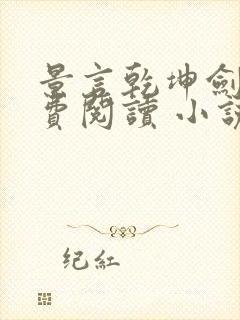 景言乾坤劍
費閱讀 小說
纪紅